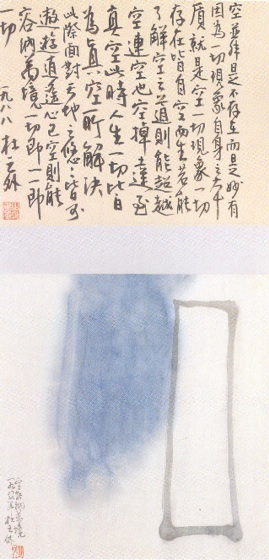 空並非是不存在而是妙有
因為一切現象自身之本
質就是空一切現象一切
存在皆自空而生若能
了解空之道則能超越
空連空也空掉達至
真空此時人生一切皆自
為真空所解決
此際面對天地之悠悠皆可
遨遊逍遙心已空則能
容納萬境一切即一一即
一切 一九八八 杜
空能納萬境